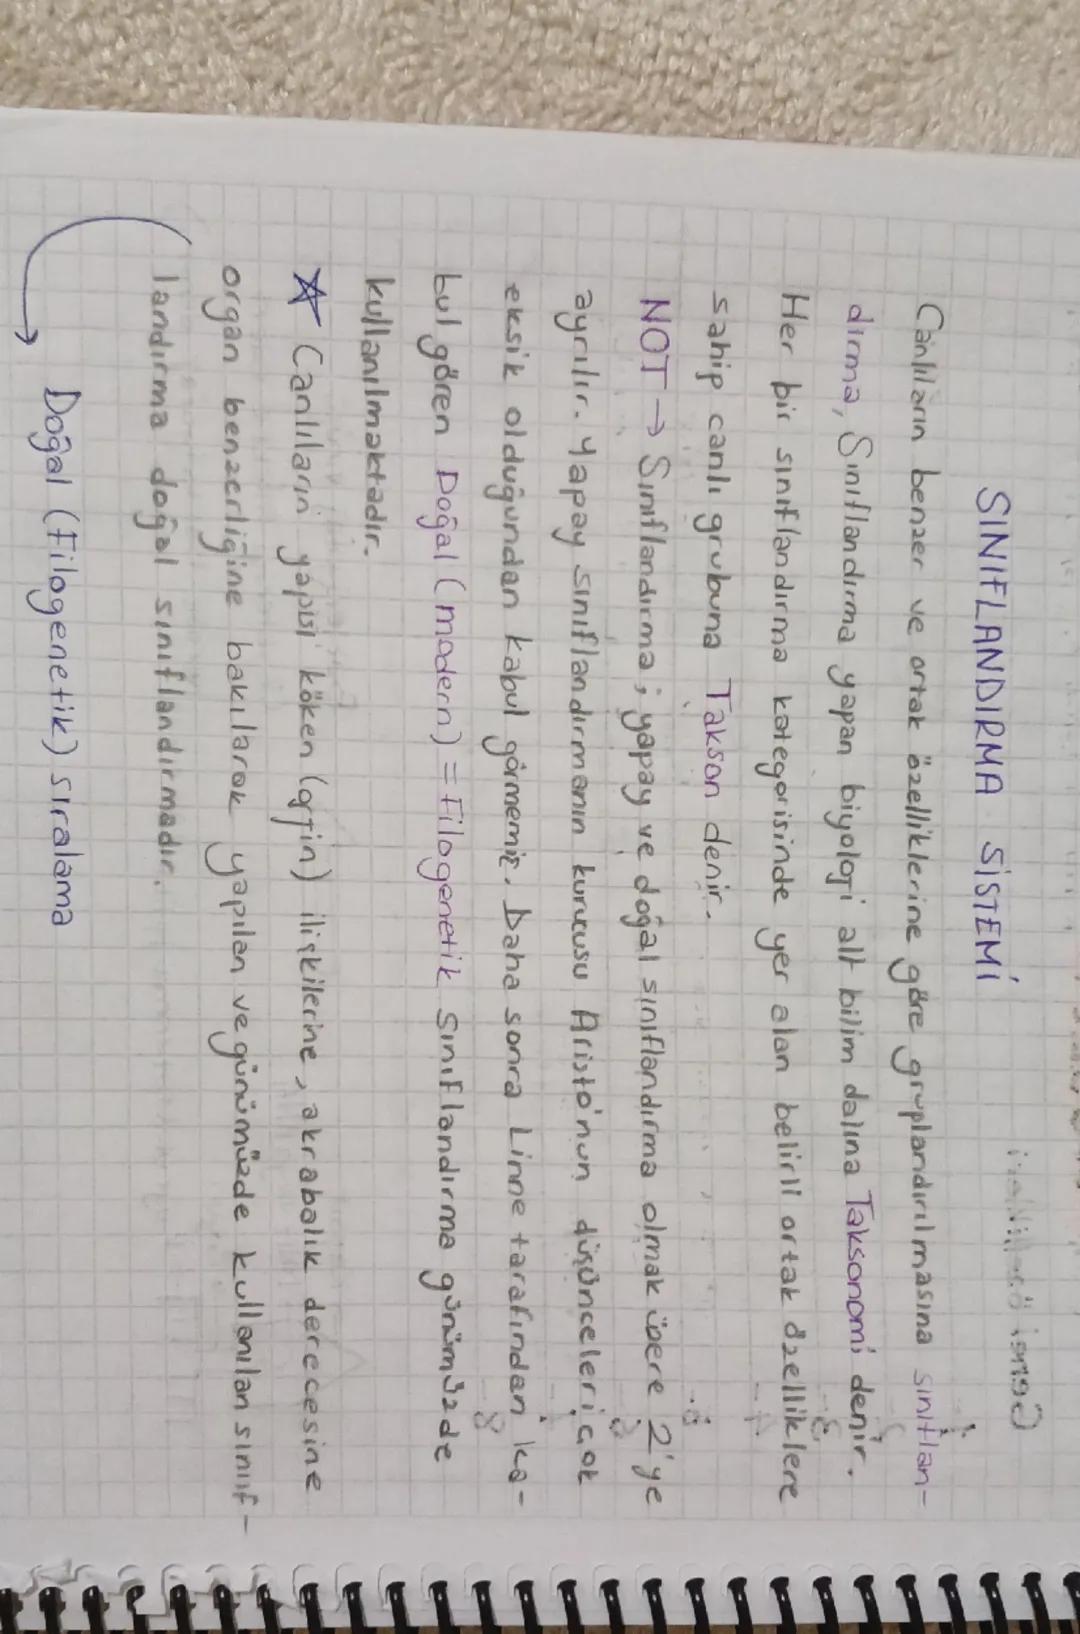 SINIFLANDIRMA SİSTEMİ
Canlıların benzer ve ortak özelliklerine göre gruplandırılmasına sınıflan-
dırma, Sınıflandırma yapan biyoloji alt bilim dalına Taksonomi denir.
Her bir sınıflandırma kategorisinde yer alan belirli ortak özelliklere
sahip canlı grubuna Takson denir.
NOT → Sınıflandırma; yapay ve doğal sınıflandırma olmak üzere 2'ye
ayrılır. Yapay sınıflandırmanın kurucusu Aristo'nun düşünceleri çok
eksik olduğundan kabul görmemiş. Daha sonra Linne tarafından ka-
bul gören Doğal (modern) = Filogenetik Sınıflandırma günümüzde
kullanılmaktadır.
☆ Canlıların yapısı köken (orjin) ilişkilerine, akrabalık derecesine
organ benzerliğine bakılarak yapılan ve günümüzde kullanılan sınıf-
landırma doğal sınıflandırmadır.
→ Doğal (Filogenetik) sıralama